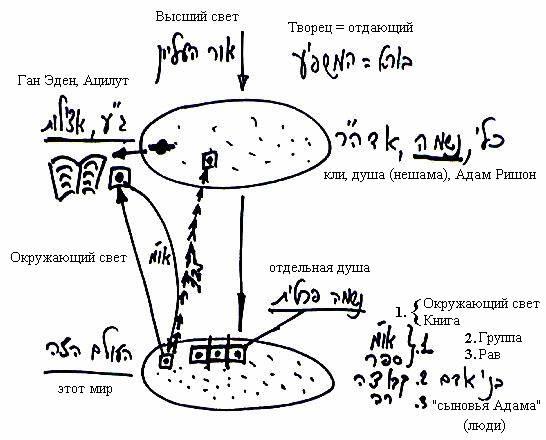 Высший свет
אור העליון
Творец = отдающий
בורא = המשפיע
Ган Эден, Ацилут
ג"ע, אצילות
כלי, נשמה, אדה"ר
кли, душа (нешама), Адам Ришон
Окружающий свет
או"מ
отдельная душа
נשמה פרטית
העולם הזה
этот мир
1. { Окружающий свет
Книга
2. Группа
3. Рав
או"מ
ספר } .1
קבוצה .2
רב .3
בני אדם
"сыновья Адама"
(люди)